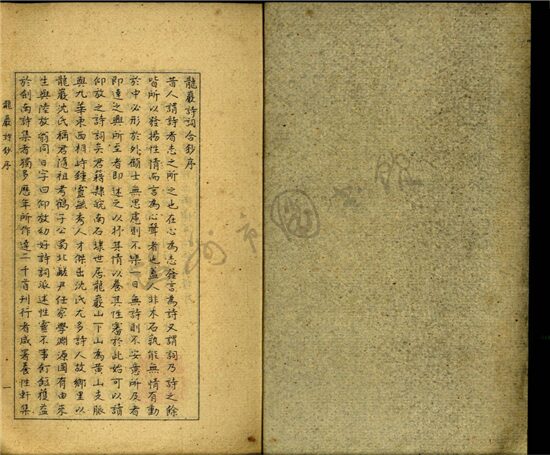 龍巖詩詞合鈔序
昔人謂詩者志之所之也在心為志發言為詩又謂詞乃詩之餘
皆所以發揚性情而言為心聲者也蓋人非木石孰能無情有動
於中必形於外顧士無思慮則不樂一日無詩則不安意所及者
即達之興所至者即述之以抒其情以養其性審於此始可以讀
仰放之詩詞矣君籍隸皖南石埭世居龍巖山下山為黃山支脈
與九華東西相峙鍾靈毓秀人才傑出沈氏尤多詩人故鄉里以
龍巖沈氏稱君隨祖考鶴子公蜀北鹺尹任家學淵源固有由來
生與陸放翁同日字曰仰放幼好詩詞派述性靈不事飣餖獲益
於劍南詩集者獨多歷年所作達二千首刊行者咸署養性軒集
龍巖詩鈔序
一
圖書館